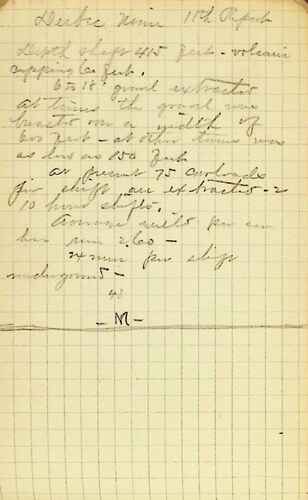 Derbec Mine 11th Report
Depth shaft 415 feet - volcanic
capping 60 feet.
6 to 18' gravel extracted
At times the gravel was
breasted over a width of
600 feet - at other times was
as low as 150 feet
At present 75 carloads
per shift are extracted - 2
10 hour shifts.
Average yield per car
has run 2.60 -
24 men per shift
underground -
48
- M -